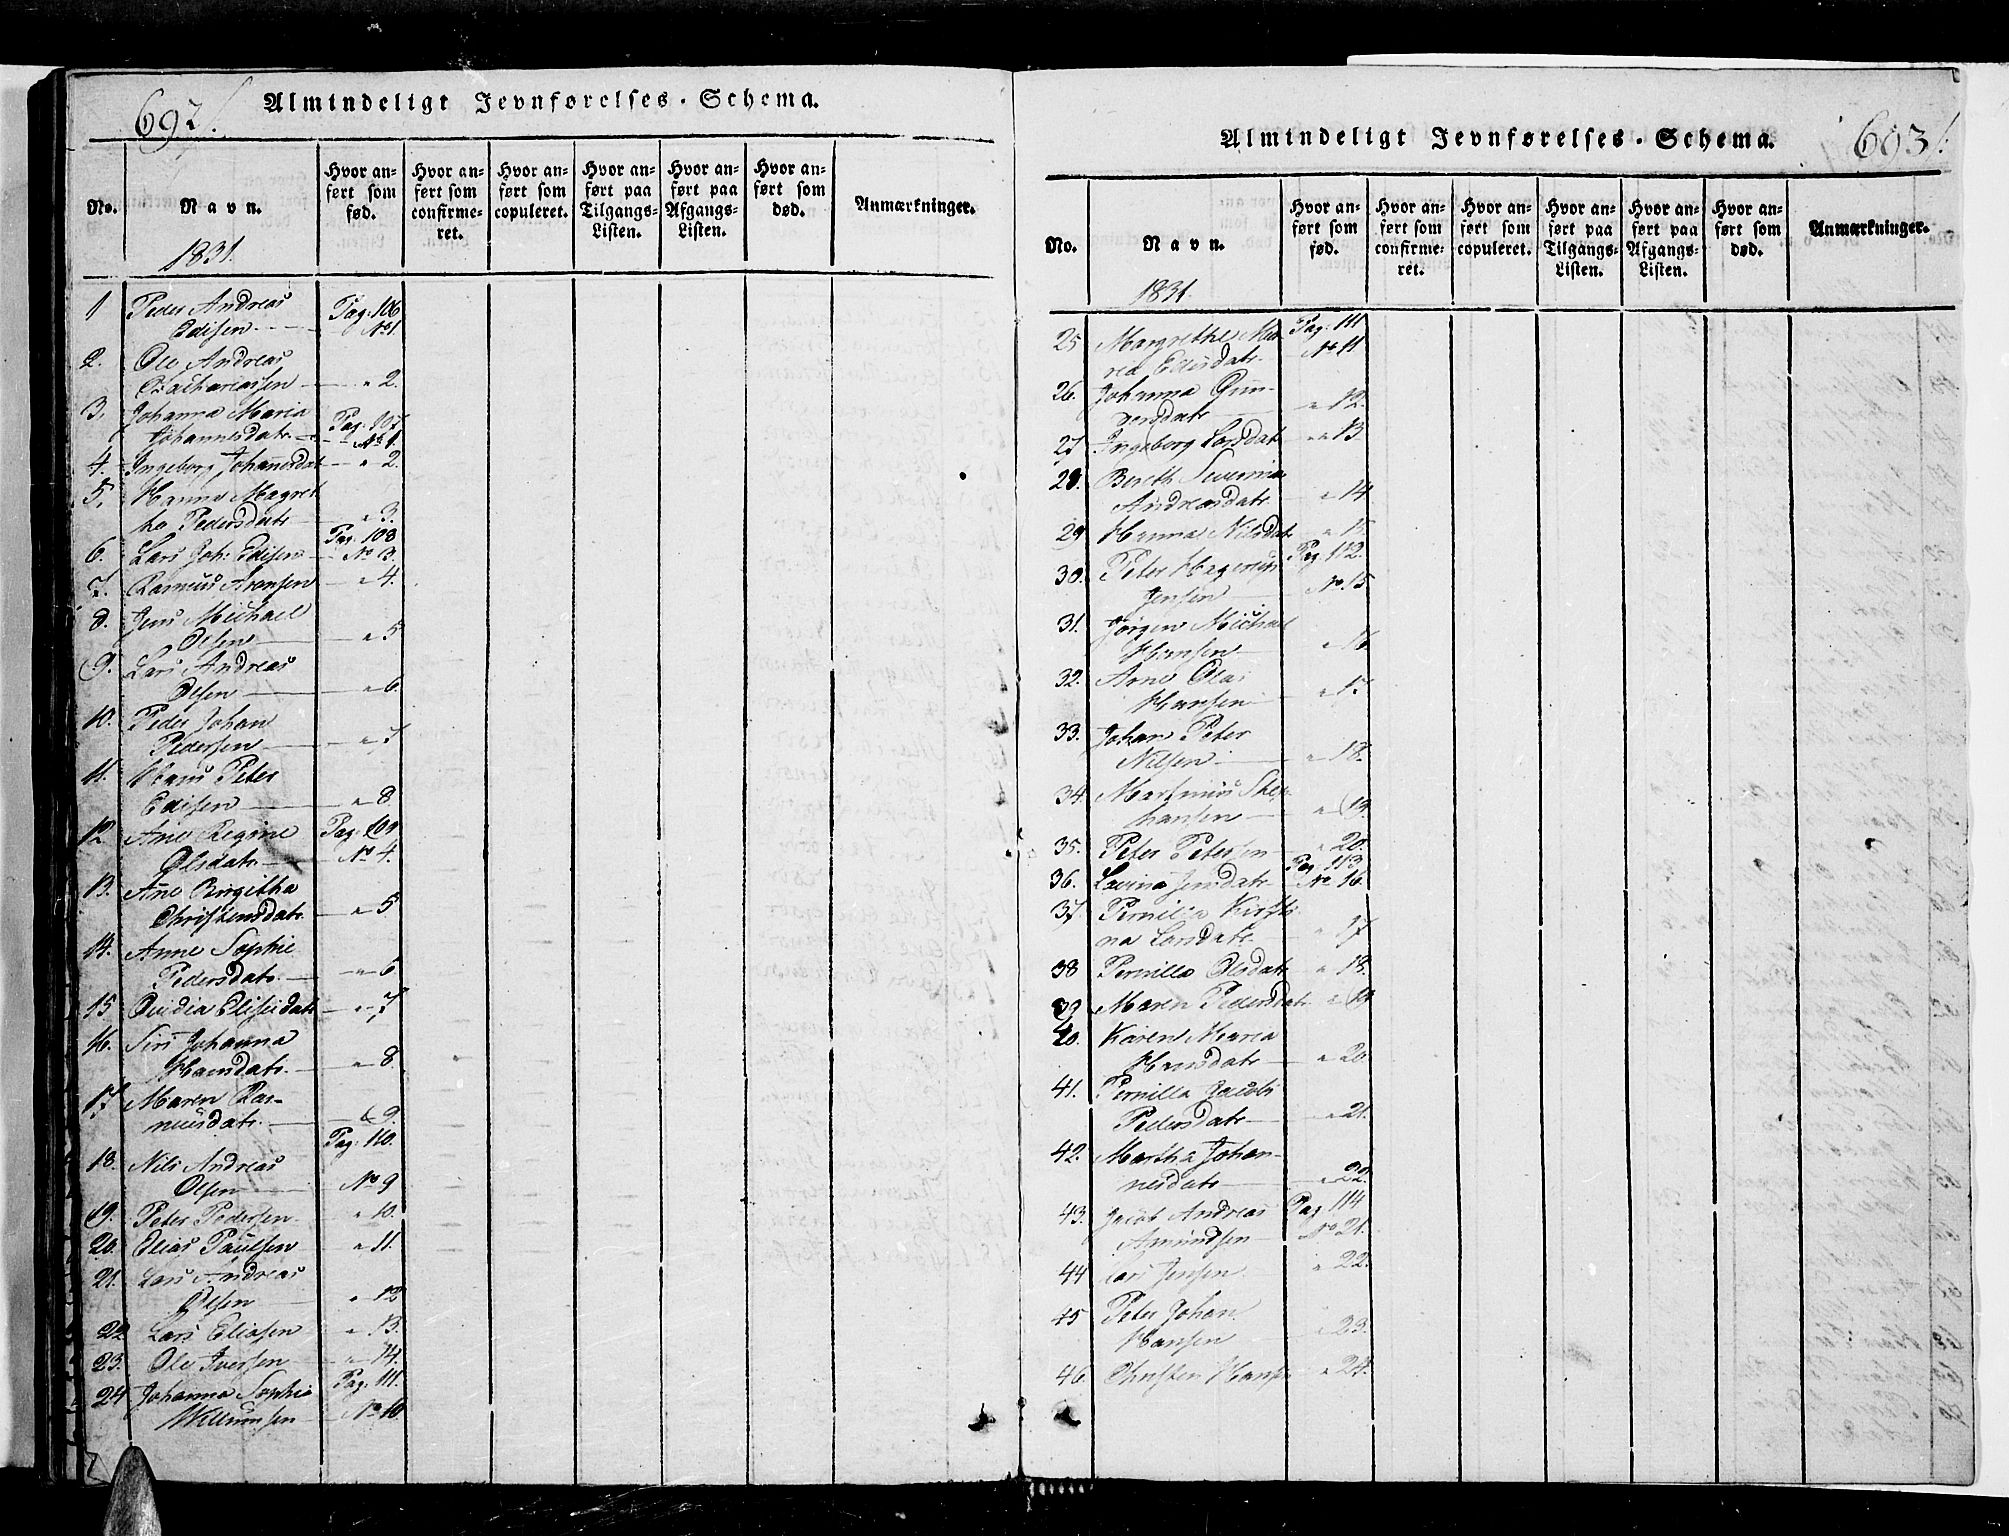 692.
Almindeligt Jevnførelses-Schema.
No.
Navn.
Hvor an-
ført som
fød.
Hvor an-
ført som
confirme-
ret.
Hvor an-
ført som
copuleret.
Hvor an-
ført paa
Tilgangs-
Listen.
Hvor an-
ført paa
Afgangs-
Listen.
Hvor an-
ført som
død.
Anmærkninger.
1831.
1 Peder Andreas Pag: 106
Edisen No 1.
2. Ole Andreas
Zachariassen " 2.
3. Johanna Maria Pag: 107
Johannesdatr. No 1.
4. Ingeborg Johannesdat " 2.
5. Hanna Magret
he Pedersdatr " 3.
Pag: 108
6. Lars Joh: Edisen No 3.
7. Rasmus Arensen " 4.
8. Jens Michael
Olsen " 5
9. Lars Andreas
Olsen " 6.
10. Peder Johan
Pedersen " 7
11. Hans Peter
Edisen " 8
12 Ane Regine Pag: 109
Olsdatr. No 4.
13. Ane Birgitha
Christensdatr. " 5
14. Anne Sophie
Pedersdatr. " 6
15 Ovidia Elisedatr " 7
16. Siri Johanna
Hansdatr. " 8.
17 Maren Ras-
musdatr. " 9.
Pag: 110.
18. Nils Andreas
Olsen No 9
19. Peter Pedersen " 10.
20. Elias Paulsen " 11.
21. Lars Andreas
Olsen " 12
22 Lars Eliasen " 13.
23. Ole Iversen " 14.
24 Johanna Sophie Pag: 111.
Willumsen No 10
693.
Almindeligt Jevnførelses-Schema.
No.
Navn.
Hvor an-
ført som
fød.
Hvor an-
ført som
confirme-
ret.
Hvor an-
ført som
copuleret.
Hvor an-
ført paa
Tilgangs-
Listen.
Hvor an-
ført paa
Afgangs-
Listen.
Hvor an-
ført som
død.
Anmærkninger.
1831.
25 Margrethe Ma Pag: 111
ria Edisdatr. No 11
26. Johanna Gun-
dersdatr " 12.
27 Ingeborg Larsdatr " 13.
28. Bereth Severina
Andreasdatr " 14.
29 Hanna Nilsdatr
Pag 112.
30. Peter Hagerup
Jensen No. 15
31. Jörgen Michael
Hansen " 16
32. Arne Olai
Hansen " 17
33. Johan Peter
Nilsen " 18.
34. Martinus Step
hansen " 19.
35. Peter Petersen " 20.
Pag 113.
36. Lavina Jensdatr No 16.
37 Pernilla Kirsti
na Larsdatr. " 17
38 Pernilla Olsdatr " 18.
39 Maren Pedersdatr " 19
40. Karen Maria
Hansdatr " 20.
41. Pernilla Jacobi
Pedersdatr " 21.
42. Martha Johan-
nesdatr " 22.
43. Jacob Andreas Pag 114.
Amundsen No 21.
44 Lars Jensen " 22.
45 Peter Johan
Hansen " 23.
46. Christen Hansen " 24.